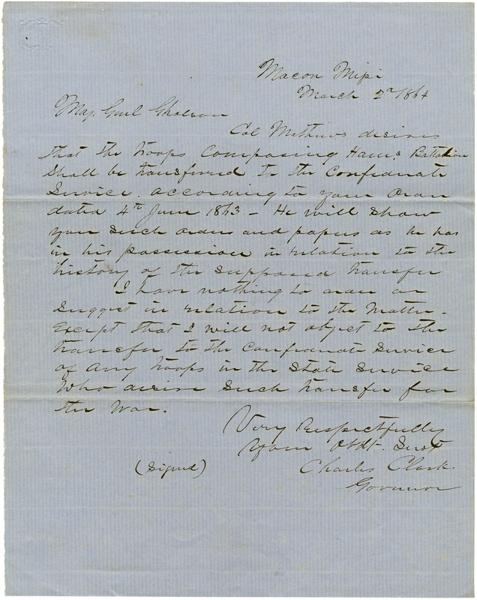 Macon Missi
March 2nd 1864
Maj. Genl Gholson
Col Mathews desires
that the troops Composing Hams Battalion
Shall be transferred to the Confederate
Service. according to your Order
dated 4th June 1863 - He will show
you Such orders and papers as he has
in his possession in relation to the
history of the supposed transfer
I have nothing to order or
Suggest in relation to the Matter -
Except that I will not object to the
transfer to the Confederate Service
of any troops in the State Service
Who desire Such transfer for
the War.
Very Respectfully
Your Obdt. Servt
(Signed) Charles Clark
Governor